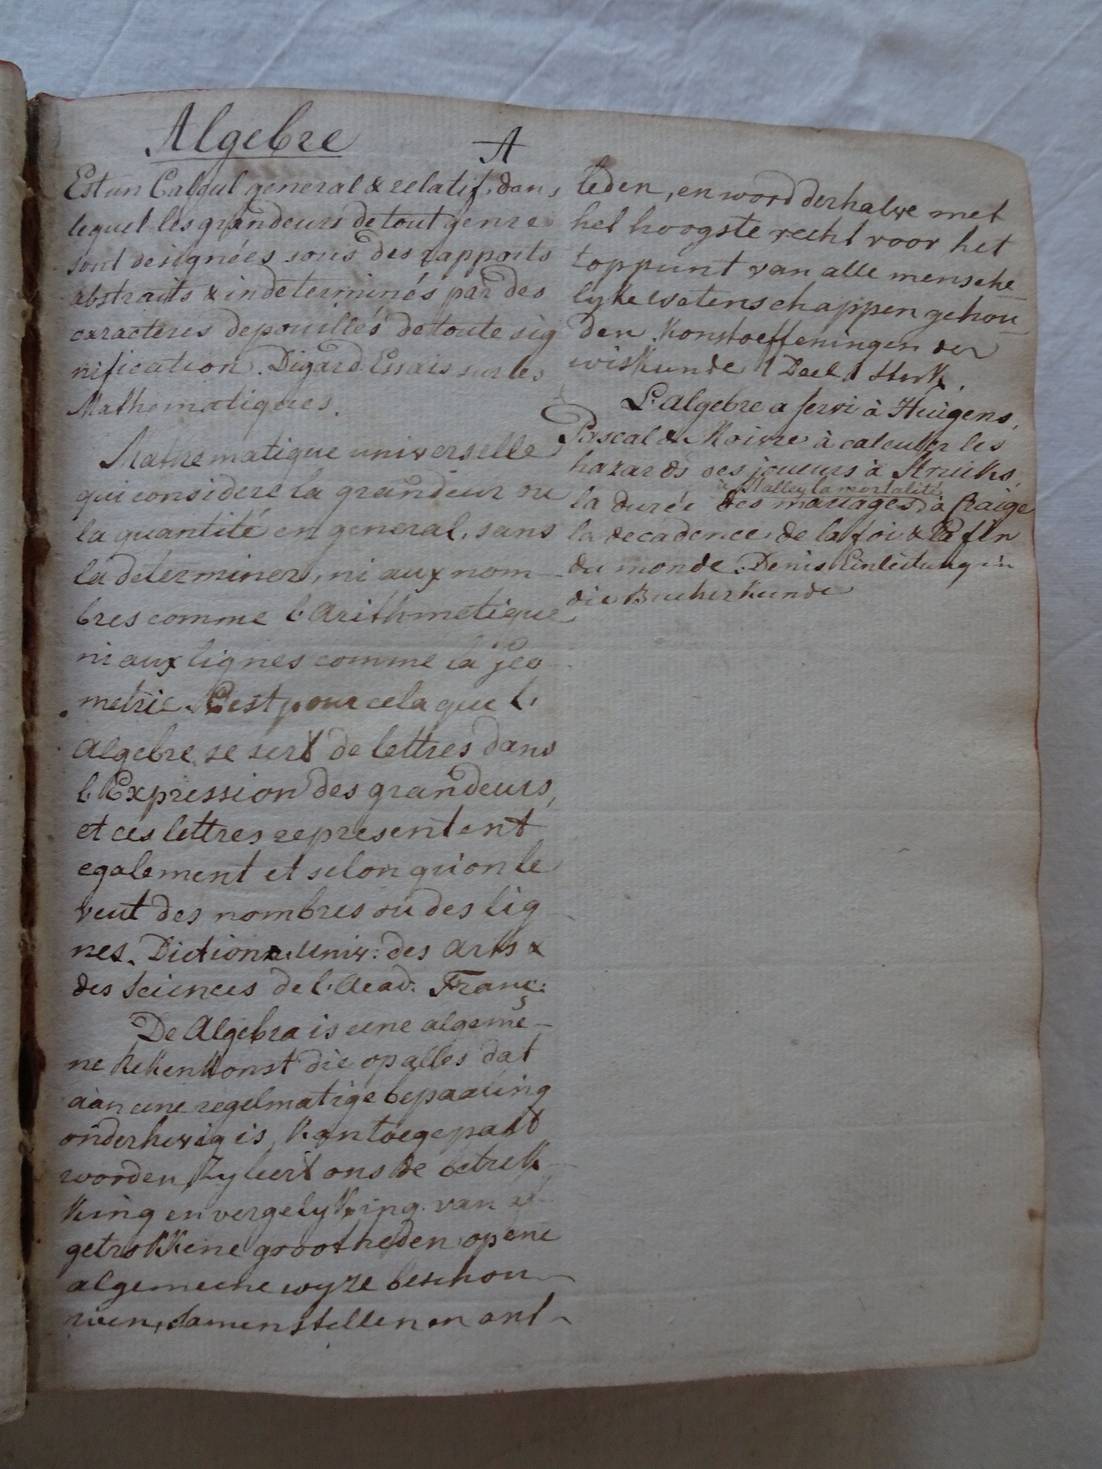 Algebre
A
Est un Calcul general & relatif, dans
lequel les grandeurs de tout genre
sont designées sous des rapports
abstraits & indeterminés par des
caracteres depouillés de toute sig
nification. Digard Essais sur les
Mathematiques.
Mathematique universelle
qui considere la grandeur ou
la quantité en general, sans
la determiner, ni aux nom-
bres comme l'Arithmetique
ni aux lignes comme la Geo
metrie. C'est pour cela que l'
Algebre se sert de lettres dans
l'Expression des grandeurs,
et ces lettres representent
egalement et selon qu'on le
veut des nombres ou des lig
nes. Diction. univ: des arts &
des Sciences de l'Acad. Franç:
De Algebra is eene algemee-
ne Rekenkonst die op alles dat
aan eene regelmatige bepaaling
onderhevig is, kan toegepast
worden, Zy leert ons de betrek
king en vergelykking van af
getrokkene grootheden op ene
algemeene wyze beschou-
wen, samenstellen en ont-
leden, en word derhalve met
het hoogste recht voor het
toppunt van alle mensche
lyke wetenschappen gehou
den. Konstoeffeningen der
wiskunde 1 Deel 1 Stuk.
L'algebre a servi à Huigens,
Pascal & Moivre à calculer les
hazards des joueurs à Struiks,
à Halley la mortalité,
la durée des mariages à Craige
la decadence de la foi & la fin
du monde. Denis Einleitung in
die Bucherkunde